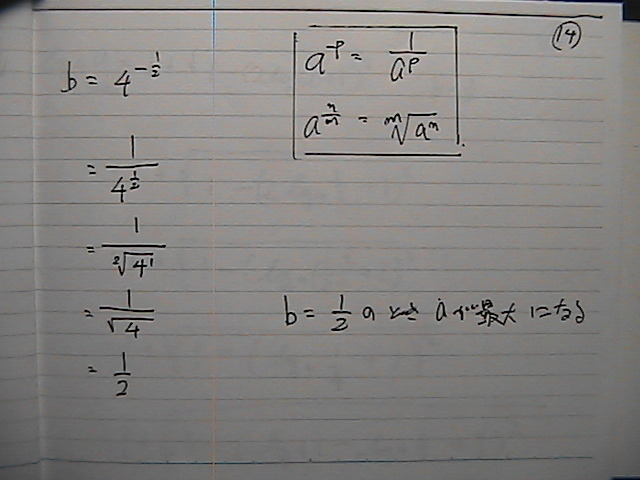 ⑭
b = 4^{-\frac{1}{2}}
= \frac{1}{4^{\frac{1}{2}}}
= \frac{1}{\sqrt[2]{4^1}}
= \frac{1}{\sqrt{4}}
= \frac{1}{2}
a^{-p} = \frac{1}{a^p}
a^{\frac{n}{m}} = \sqrt[m]{a^n}
b = \frac{1}{2} のとき a が最大になる